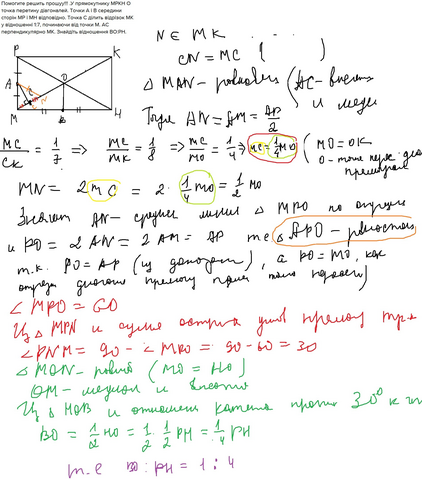 Поможите решить прошуу!!! .У прямокутнику МРКН О
точка перетину діагоналей. Точки А і В середини
сторін МР і МН відповідно. Точка С ділить відрізок МК
у відношенні 1:7, починаючи від точки М. АС
перпендикулярно МК. Знайдіть відношення ВО:РН.
P K
A O
C N
M B H
N ∈ MK
CN = MC (
△ MAN - равнобед (AC - высота
и меди
Тогда AN = AM = AP/2
MC/CK = 1/7 ⇒ MC/MK = 1/8 ⇒ MC/MO = 1/4 ⇒ MC = 1/4 MO (MO = OK
O - точка перес. диа
MN = 2 MC = 2 · 1/4 MO = 1/2 MO
Значит AN - средняя линия △ MPO по
и PO = 2AN = 2AM = AP т.е △ APO -
т.к. PO = AP (из), а PO = MO, как
∠ MPO = 60
Из △ MPN и сумме острых углов прямоу тр.
∠ PNM = 90 - ∠ MPO = 90 - 60 = 30
△ MON - равноб (MO = HO)
OM - и высота
Из △ HOB и отношения катета против 30° к
BO = 1/2 HO = 1/2 · 1/2 PH = 1/4 PH
т.е BO : PH = 1 : 4